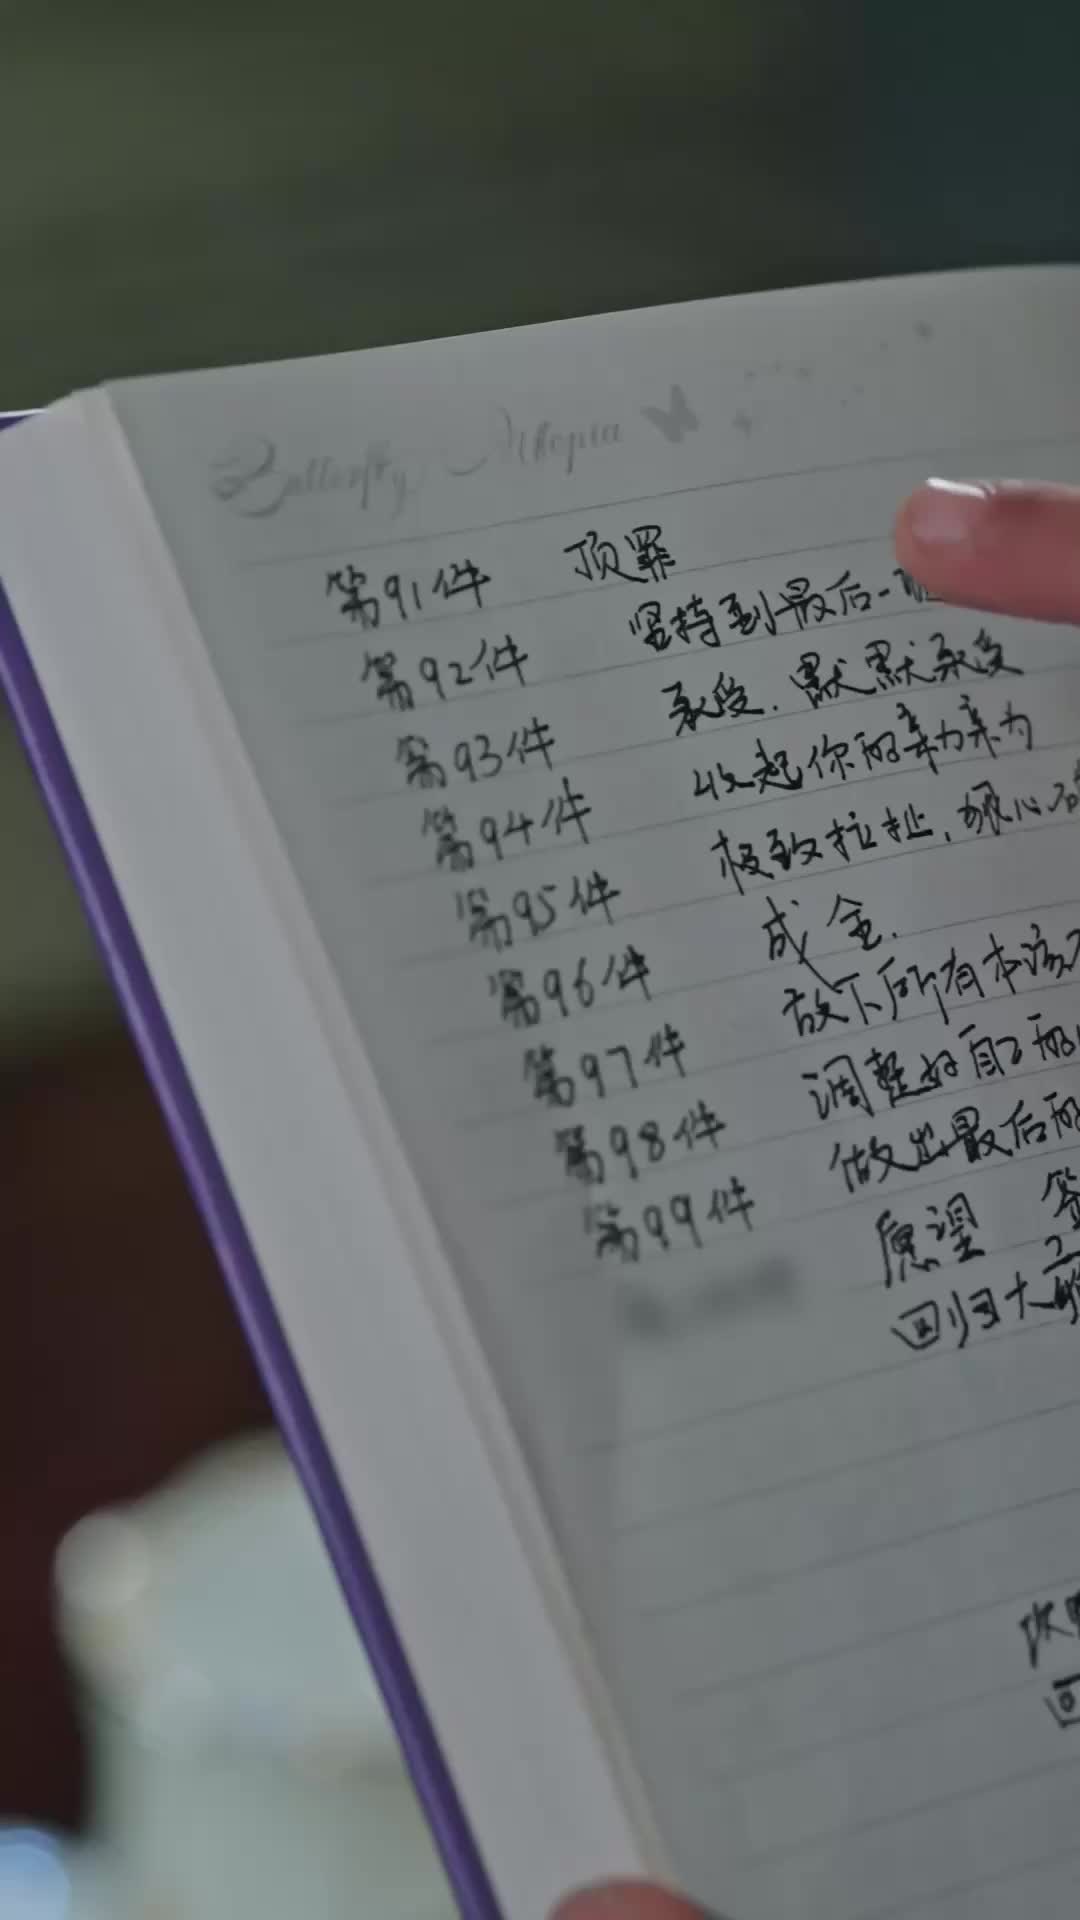 Butterfly
第91件 顶罪
第92件 坚持到最后一
第93件 承受.默默承受
第94件 收起你的亲力亲为
第95件 极致拉扯,狠心
第96件 成全.
第97件 放下所有本该
第98件 调整好自己的
第99件 做出最后的
愿望 签
回归大
回